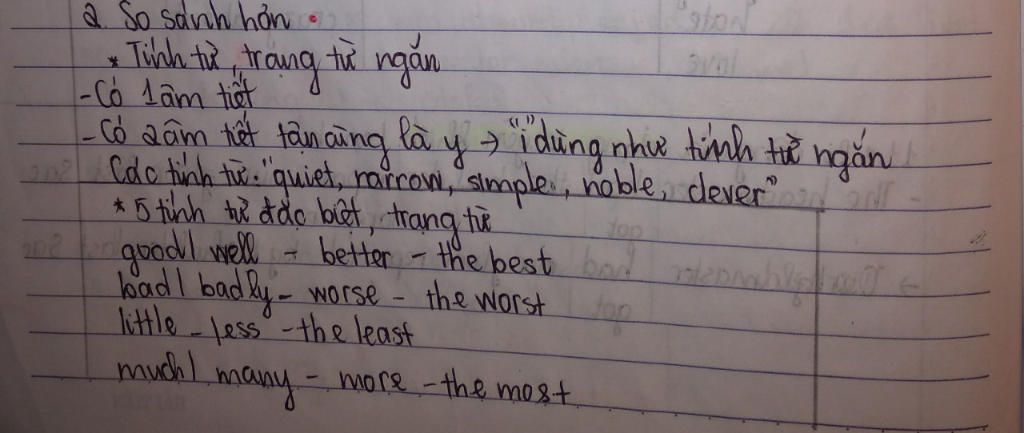 2. So sánh hơn
* Tính từ, trạng từ ngắn
- Có 1 âm tiết
- Có 2 âm tiết tận cùng là y → "i" dùng như tính từ ngắn
Các tính từ: "quiet, narrow, simple, noble, clever"
* 5 tính từ đặc biệt, trạng từ
good/ well - better - the best
bad/ badly - worse - the worst
little - less - the least
much/ many - more - the most